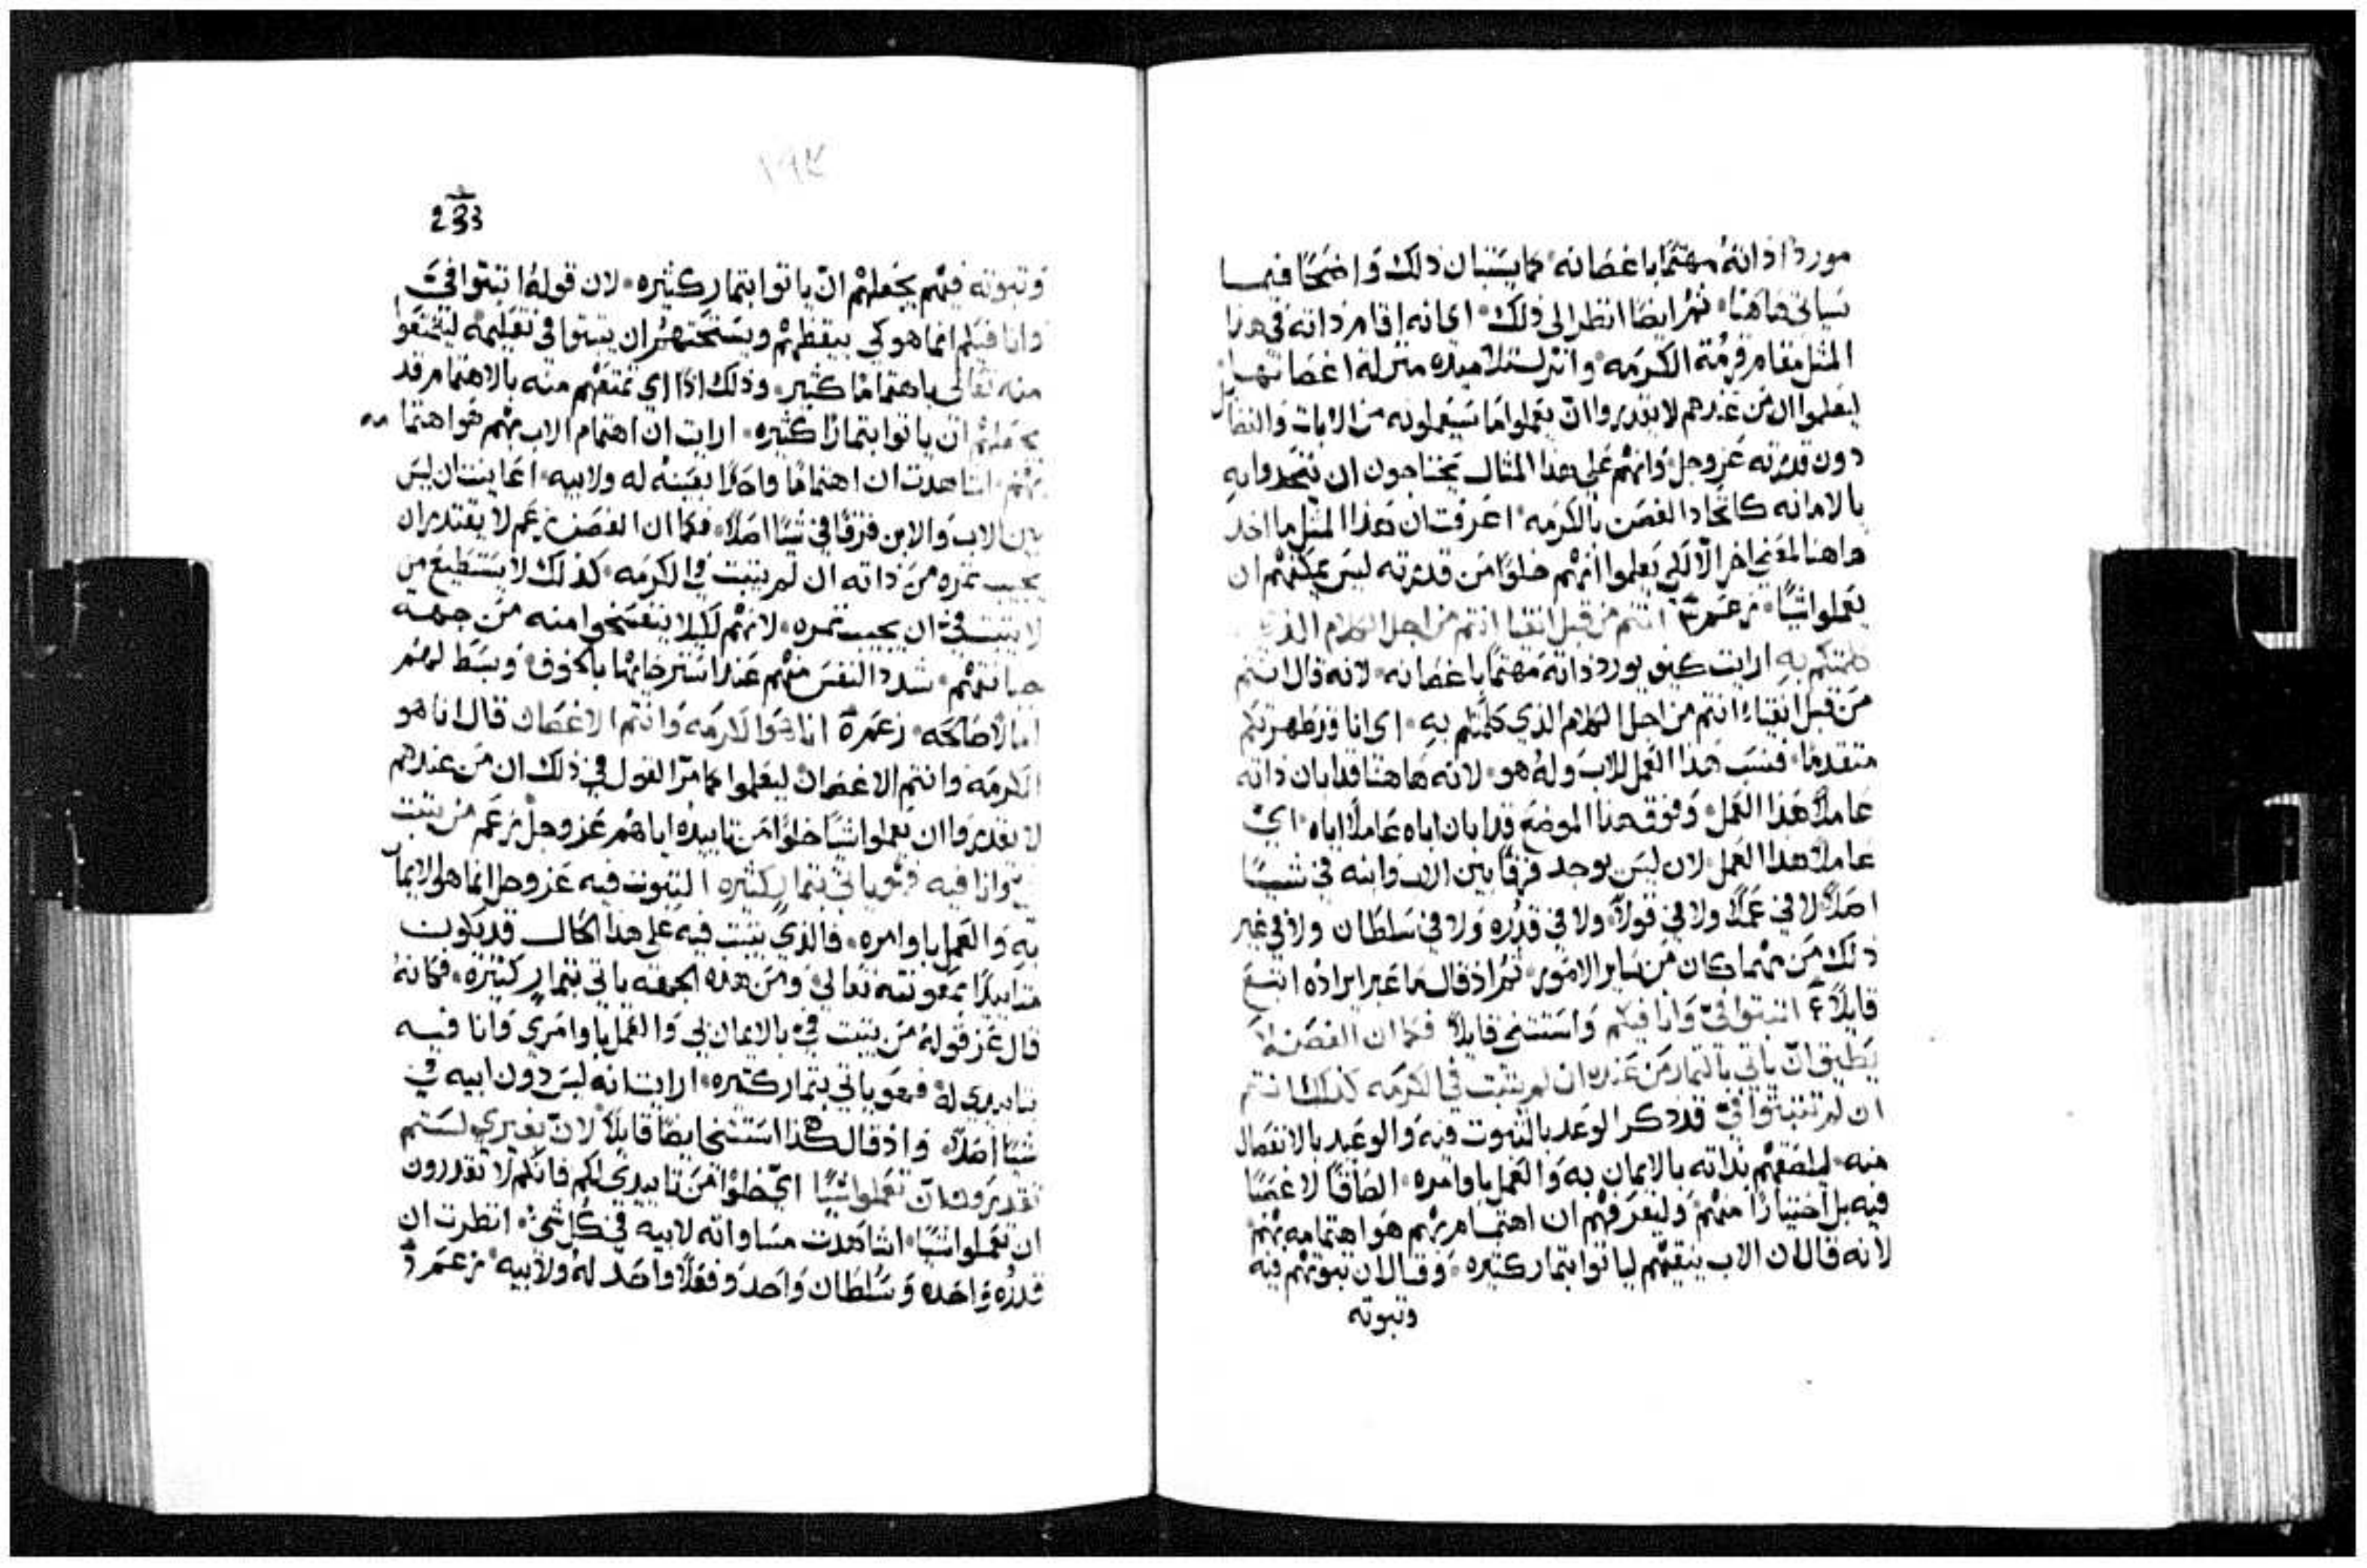 مورد اذاته مهتما باغصانه كما يستبان ذلك واضحا فيما
سياتي هاهنا ثم ايضا انظر الى ذلك اي انه اقام ذاته في هذا
المثل مقام قرمة الكرمه وانزل تلاميده منزلة اغصانها
ليعلموا ان من غيرهم لا يقتدروا ان يعملوا ما سيعملونه من الايات والفضايل
دون قدرته عز وجل وانهم على هذا المثال يحتاجون ان يتحدوا به
بالامانه كاتحاد الغصن بالكرمه اعرفت ان هذا المثل ما اخد
هاهنا لمعني اخر الا لكي يعلموا انهم خلوا من قدرته ليس يمكنهم ان
يعملوا شيا زعم ٣ انتم من قبل انقيا انتم من اجل الكلام الذي
كلمتكم به ارايت كيف يورد ذاته مهتما باغصانه لانه قال انتم
من قبل انقياء انتم من اجل الكلام الذي كلمتكم به اي انا قد طهرتكم
متقدما فنسب هذا العمل للاب وله هو لانه هاهنا قد ابان ذاته
عاملا هذا العمل وفوق هذا الموضع قد ابان اباه عاملا اياه اي
عاملا هذا العمل لان ليس يوجد فرقا بين الاب وابنه في شيا
اصلا لا في عملا ولا في قولا ولا في قدره ولا في سلطان ولا في غير
ذلك من مهما كان من ساير الامور ثم اذ قال ما عبر ايراده اتبع
قايلا ٤ اثبتوا في وانا فيكم واستثنى قايلا فكما ان الغصن لا
يطيق ان ياتي بالثمار من عنده ان لم يثبت في الكرمه كذلك انتم
ان لم تثبتوا في قد ذكر الوعد بالثبوت فيه والوعيد بالانفصال
منه ليلصقهم بذاته بالايمان به والعمل باوامره الصاقا لا غصبا
فيه بل اختيارا منهم وليعرفهم ان اهتمامه بهم هو اهتمامه بهم
لانه قال ان الاب ينقيهم لياتوا بثمار كثيره وقال ان ثبوتهم فيه
وثبوته
١٩٢
233
وثبوته فيهم يجعلهم ان ياتوا بثمار كثيره لان قوله اثبتوا في
وانا فيكم انما هو كي ييقظهم ويستحثهم ان يثبتوا في تعليمه ليتمتعوا
منه تعالى باهتماما كثير وذلك اذا اي تمتعهم منه بالاهتمام قد
يجعلهم ان ياتوا بثمارا كثيره ارايت ان اهتمام الاب بهم هو اهتمامه
بهم اشاهدت ان اهتماما واحدا بعينه له ولابيه اعاينت ان ليس
بين الاب والابن فرقا في شيا اصلا فكما ان الغصن زعم لا يقتدر ان
يجيب ثمره من ذاته ان لم يثبت في الكرمه كذلك لا يستطيع من
لا يثبت في ان يجيب ثمره لانهم لكيلا ينفسخوا منه من جهة
جبانتهم شدد النفس منهم عند استرخايها بالخوف وبسط لهم
امالا صالحه زعم ٥ انا هو الكرمه وانتم الاغصان قال انا هو
الكرمه وانتم الاغصان ليعلموا كما مر القول في ذلك ان من عندهم
لا يقدروا ان يعملوا شيا خلوا من تاييده اياهم عز وجل زعم من يثبت
في وانا فيه فهو ياتي بثمار كثيره الثبوت فيه عز وجل انما هو الايمان
به والعمل باوامره فالذي يثبت فيه على هذا الحال قد يكون
متايدا بمعونته تعالي ومن هذه الجهه ياتي بثمار كثيره فكانه
قال عز قوله من يثبت في بالايمان بي والعمل باوامري وانا فيه
بتاييدي له فهو ياتي بثمار كثيره ارايت انه ليس دون ابيه في
شيا اصلا واذ قال هكذا استثنى ايضا قايلا لان بغيري لستم
تقدرون ان تعملوا شيا اي خلوا من تاييدي لكم فانكم لا تقدرون
ان تعملوا شيا اشاهدت مساواته لابيه في كل شيء انظرت ان
قدره واحده وسلطان واحد وفعلا واحد له ولابيه زعم ٦